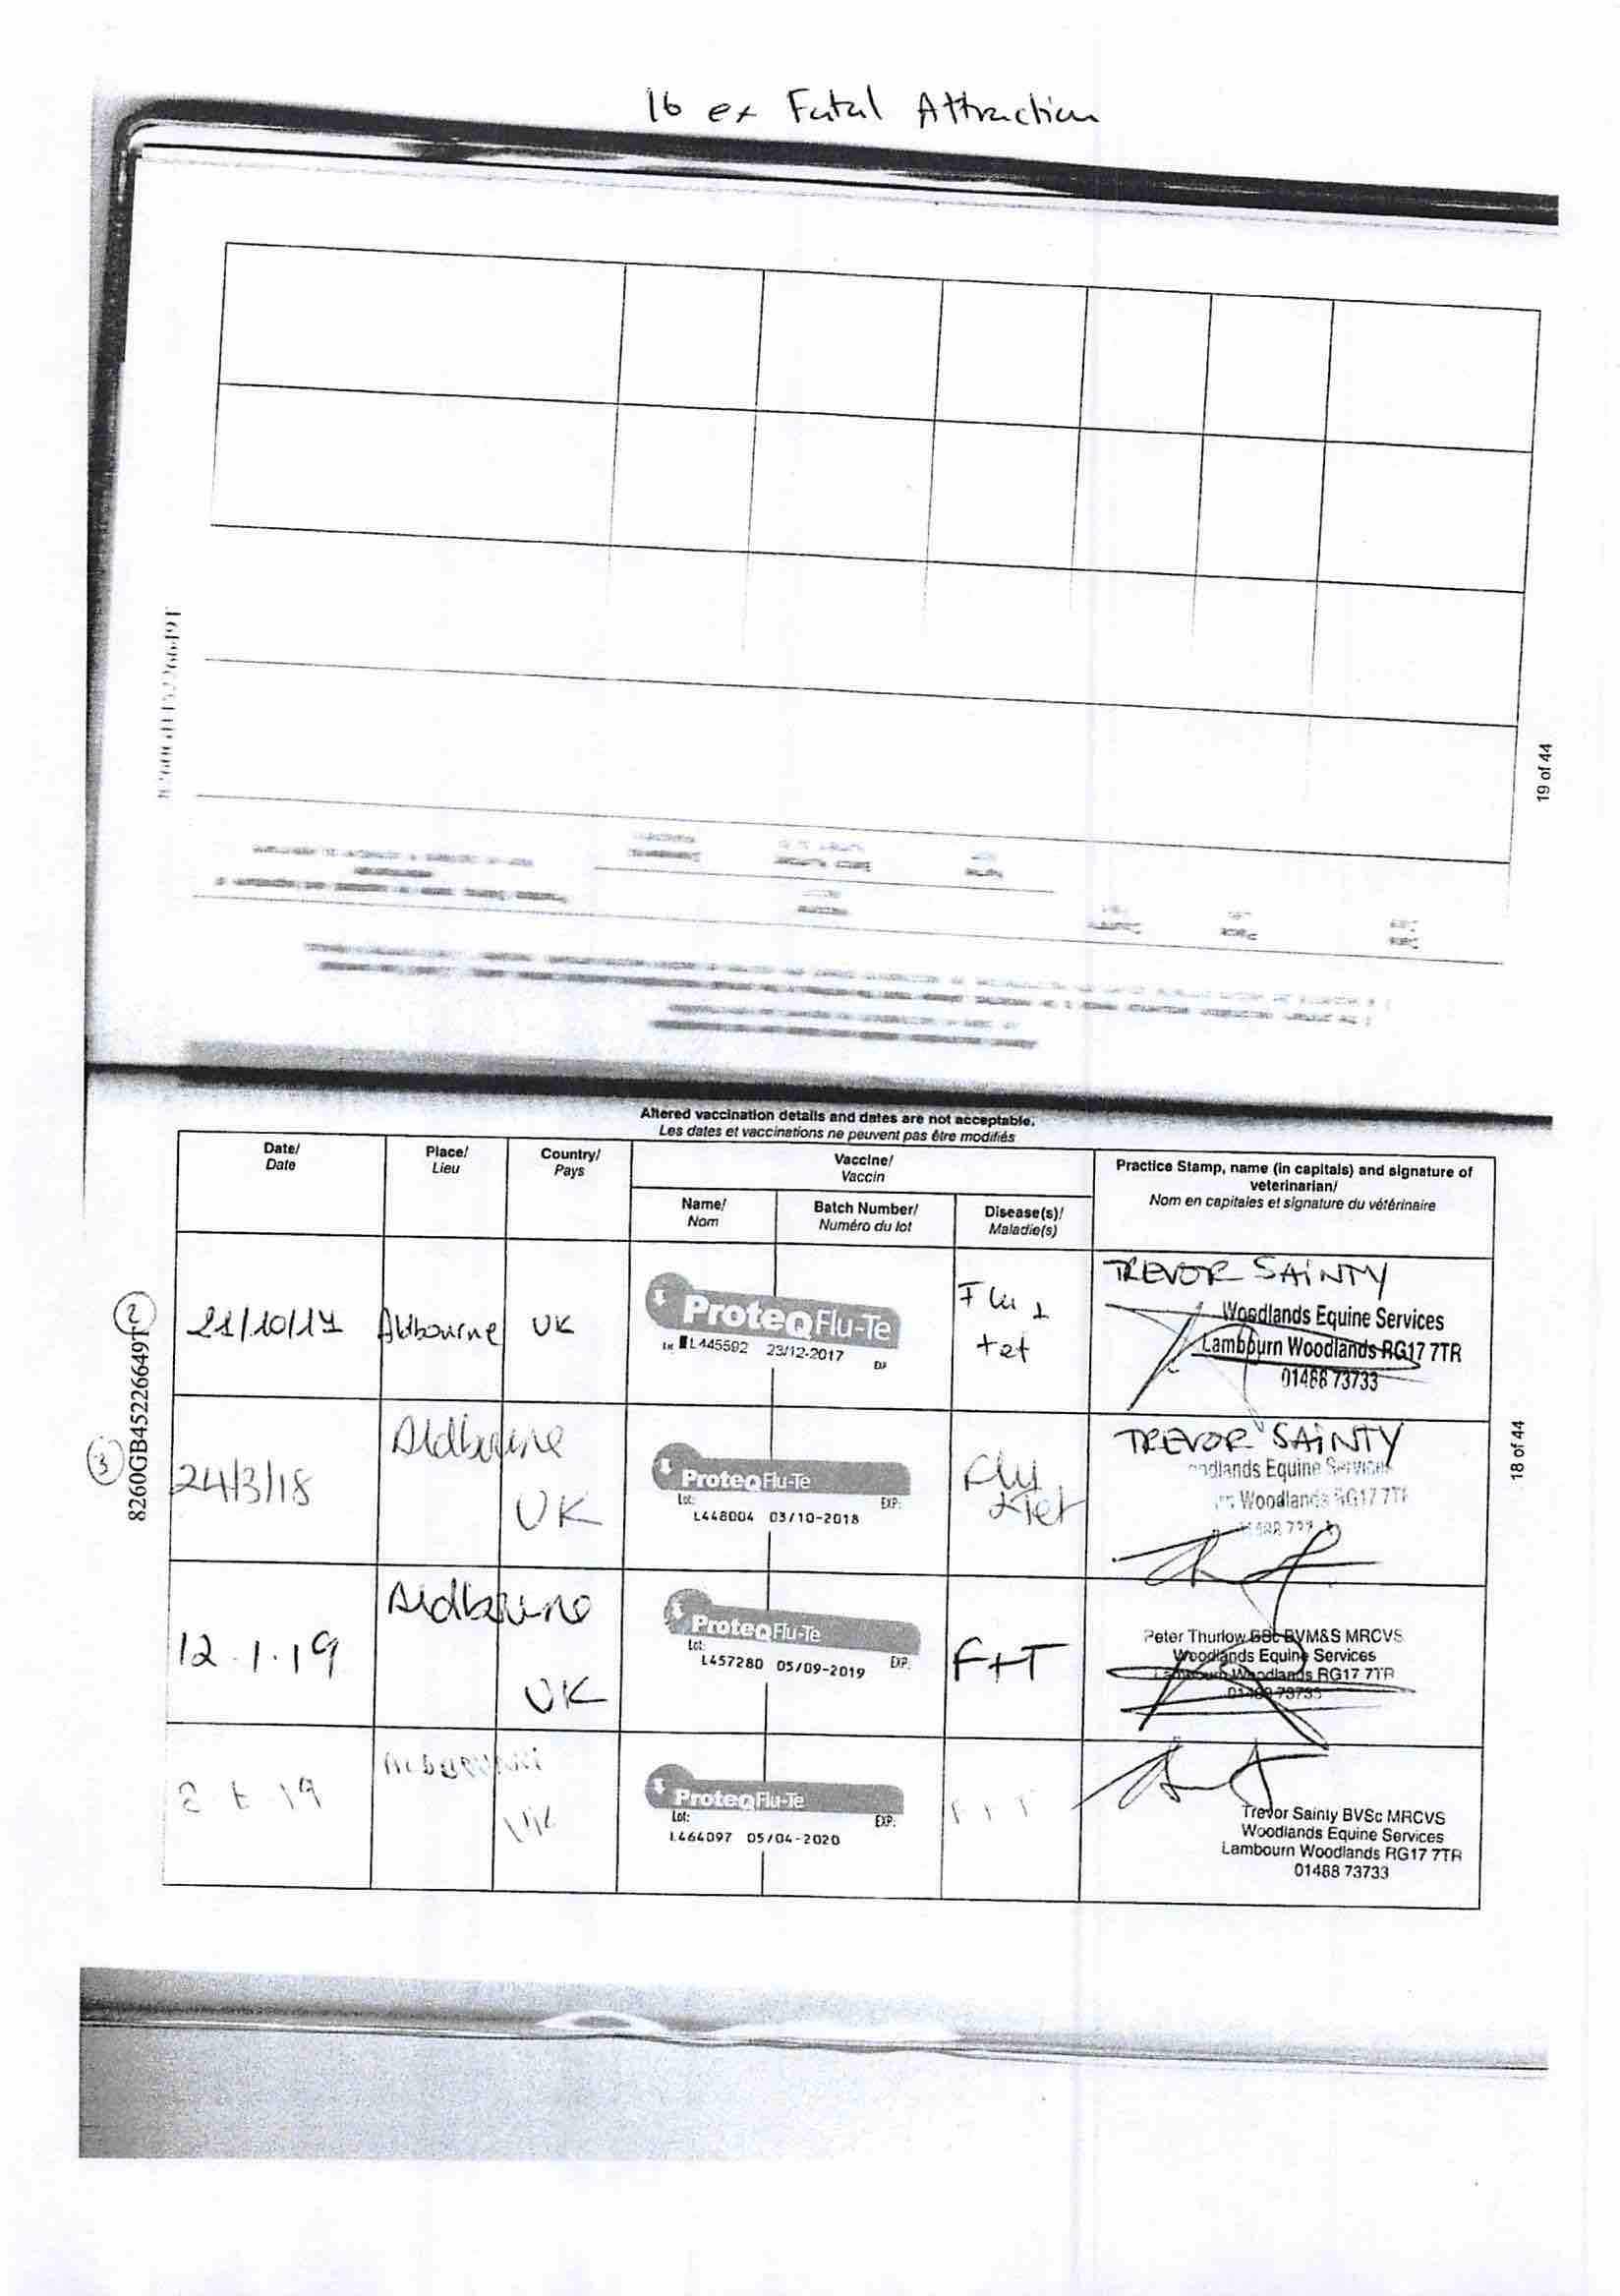 16 ex Fatal Attraction
19 of 44
Altered vaccination details and dates are not acceptable.
Les dates et vaccinations ne peuvent pas être modifiés
Date/
Date
Place/
Lieu
Country/
Pays
Vaccine/
Vaccin
Name/
Nom
Batch Number/
Numéro du lot
Disease(s)/
Maladie(s)
Practice Stamp, name (in capitals) and signature of
veterinarian/
Nom en capitales et signature du vétérinaire
8260GB45226649T
18 of 44
2
21/10/17
Aldbourne
UK
ProteqFlu-Te
L445592 23/12-2017
Flu +
tet
TREVOR SAINTY
Woodlands Equine Services
Lambourn Woodlands RG17 7TR
01488 73733
3
24/3/18
Aldbourne
UK
ProteqFlu-Te
Lot: EXP:
L448004 03/10-2018
Flu
+Tet
TREVOR SAINTY
Equine
Woodlands RG17 7TR
12.1.19
Aldbourne
UK
ProteqFlu-Te
Lot: EXP:
L457280 05/09-2019
F+T
Peter Thurlow BVM&S MRCVS
Woodlands Equine Services
Lambourn Woodlands RG17 7TR
01488 73733
19
UK
ProteqFlu-Te
Lot: EXP:
L464097 05/04-2020
Trevor Sainty BVSc MRCVS
Woodlands Equine Services
Lambourn Woodlands RG17 7TR
01488 73733